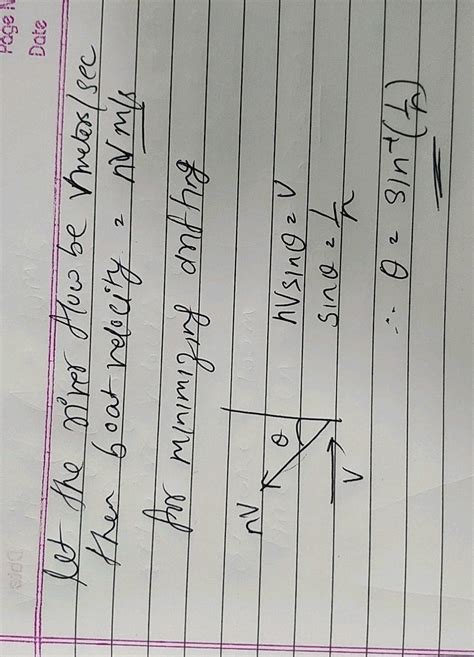 Page N
Date
let the river flow be v meters/sec
then boat velocity = nV m/s
for minimizing drifting
nV
θ
V
nVsinθ = V
sinθ = 1/n
∴ θ = sin⁻¹(1/n)